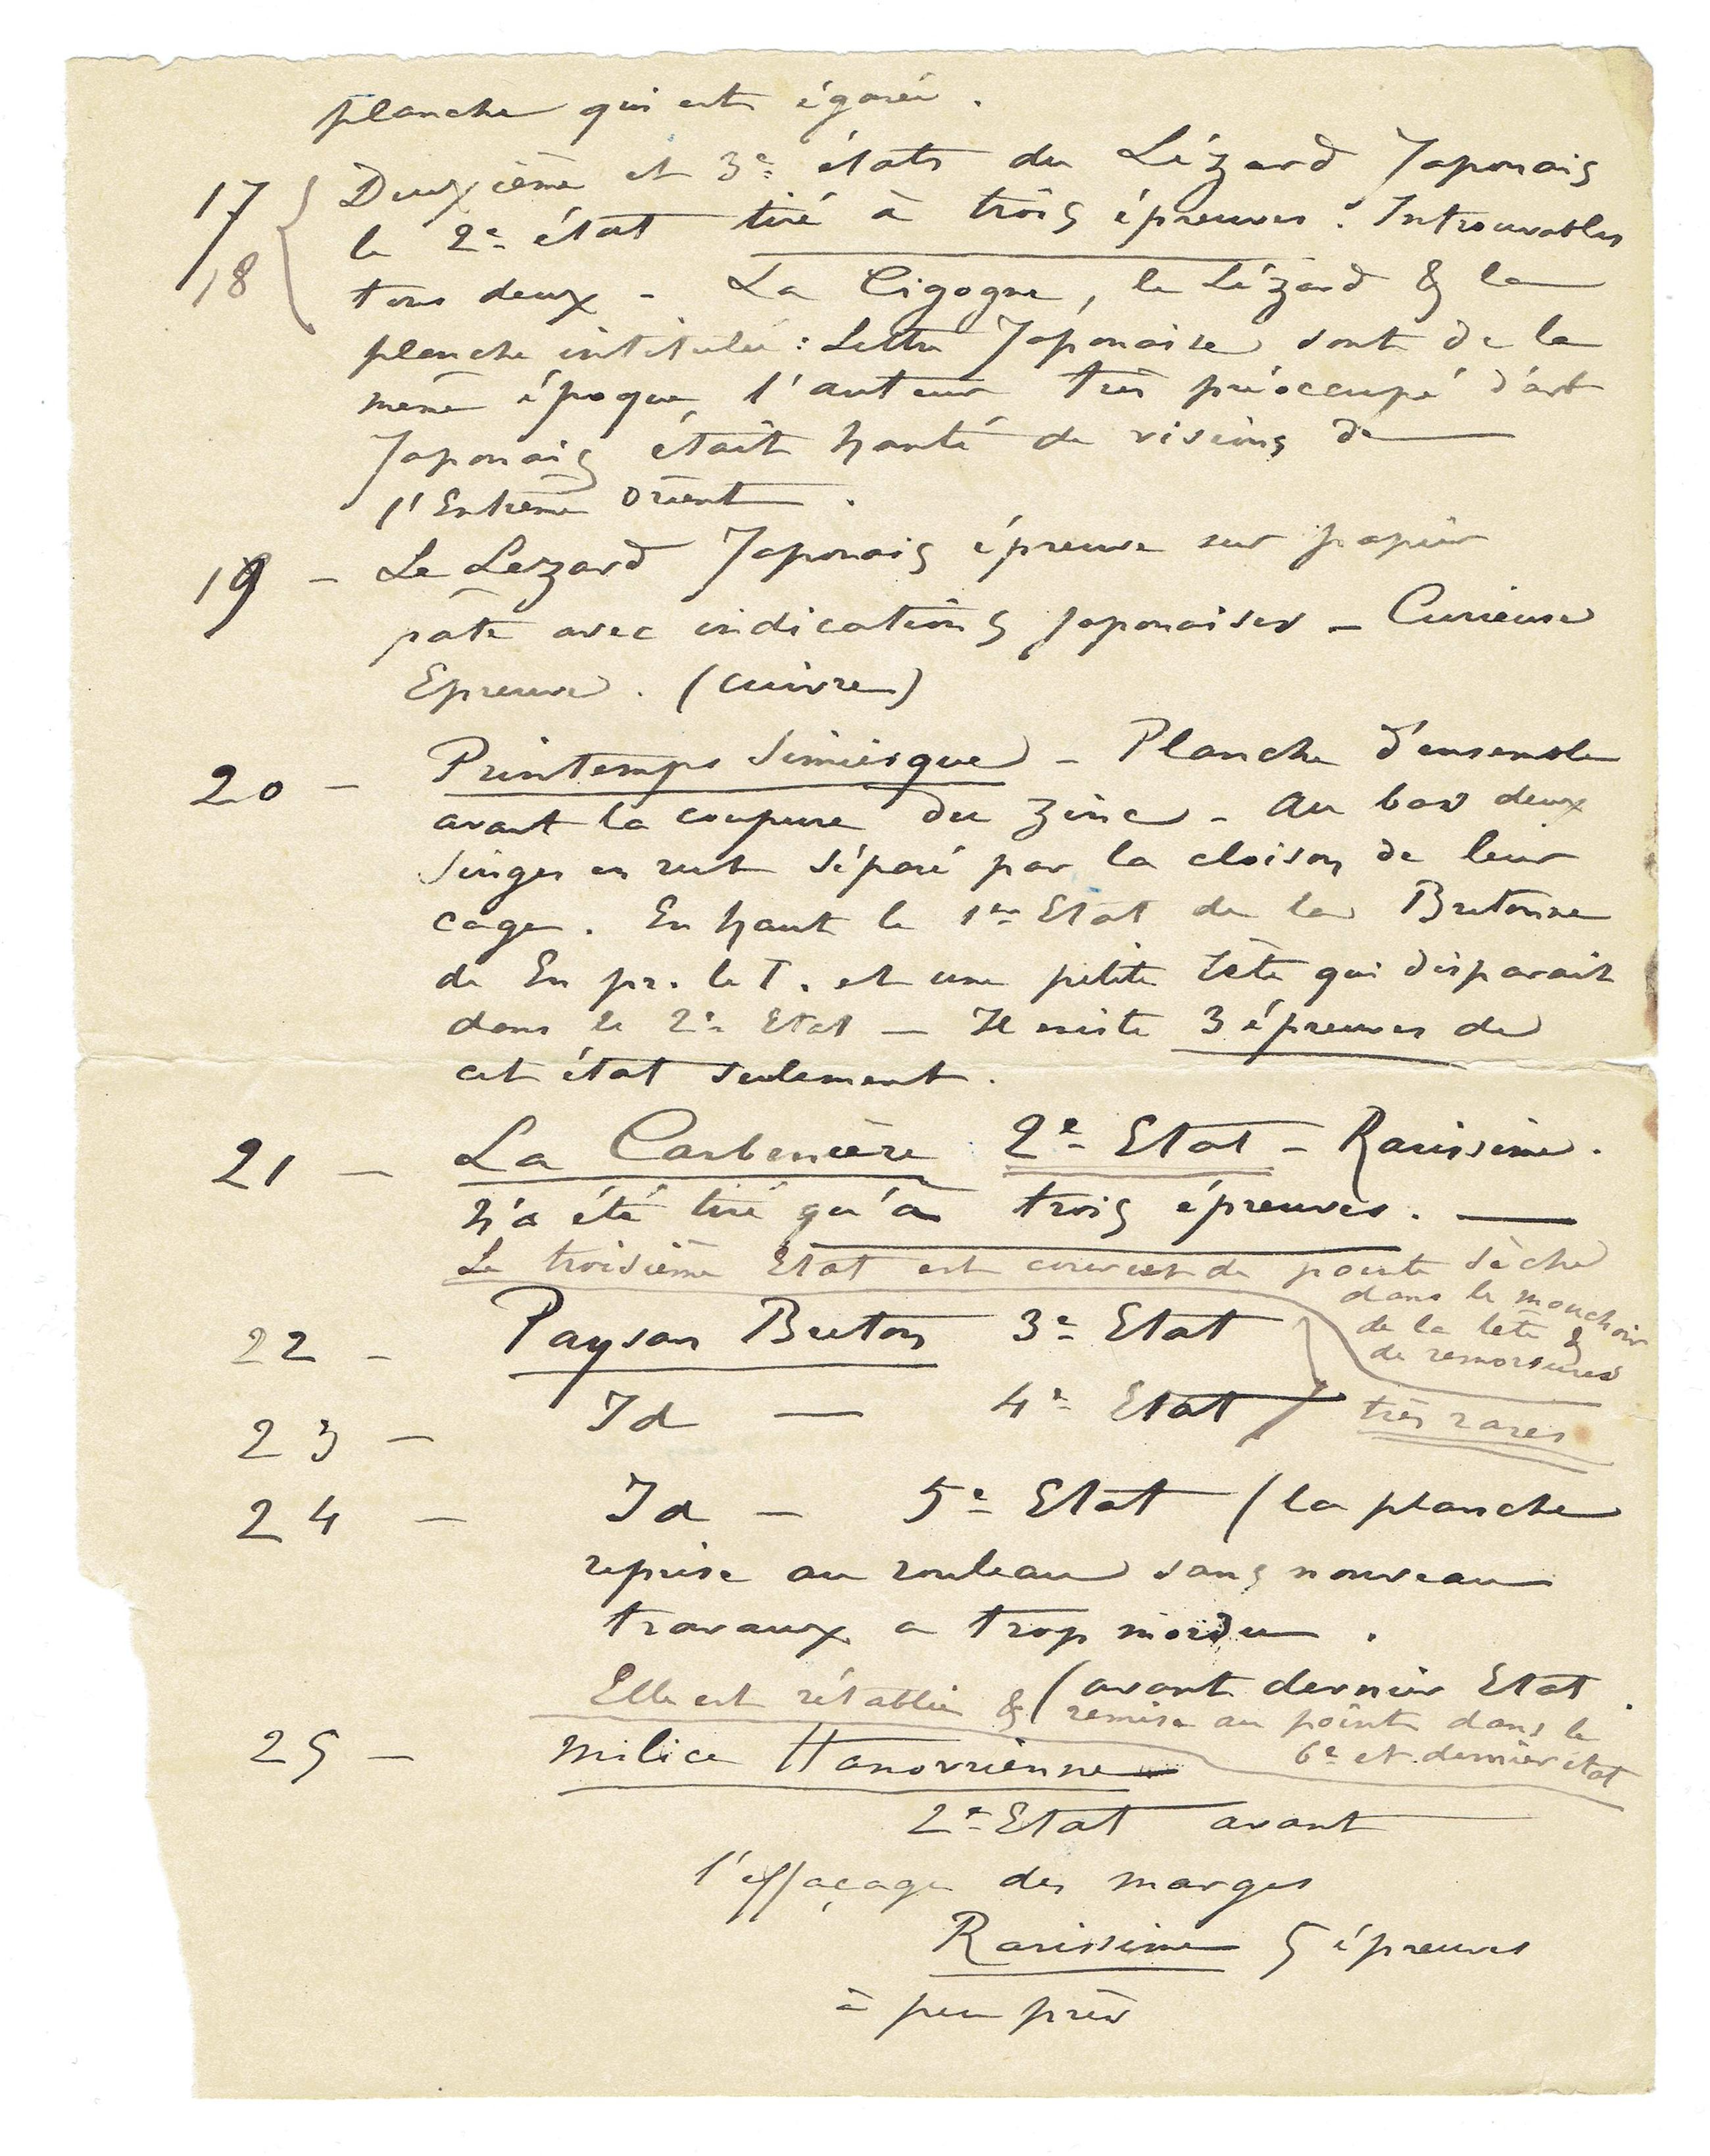 planche qui est égarée .
17 Deuxième et 3e états du Lézard Japonais
le 2e état tiré à trois épreuves. Introuvables
18 tous deux - La Cigogne, le Lézard & la
planche intitulée : Lettre Japonaise sont de la
même époque, l'auteur très préoccupé d'art
Japonais était hanté de visions de
l'Extrême Orient .
19 - Le Lezard Japonais épreuve sur papier
pâte avec indications japonaises - Curieuse
Epreuve . (cuivre)
20 - Printemps Simiesque - Planche d'ensemble
avant la coupure du zinc - Au bas deux
singes en rut séparé par la cloison de leur
cage . En haut le 1er Etat de la Bretonne
de En pr. le T. et une petite tête qui disparait
dans le 2e Etat - Il existe 3 épreuves de
cet état seulement .
21 - La 2e Etat - Rarissime .
n'a été tiré qu'à trois épreuves . —
Le troisième Etat est couvert de pointe sèche
dans le mouchoir
de la tête &
de remorsures
22 - Paysan Breton 3e Etat
23 - Id — 4e Etat très rares
24 - Id - 5e Etat (la planche
reprise au rouleau sans nouveau
travaux a trop mordu .
(avant dernier Etat .
Elle est rétablie & remise au point dans le
6e et dernier état
25 - Milice Hanovrienne
2e Etat avant
l'effaçage des marges
Rarissime 5 épreuves
à peu près